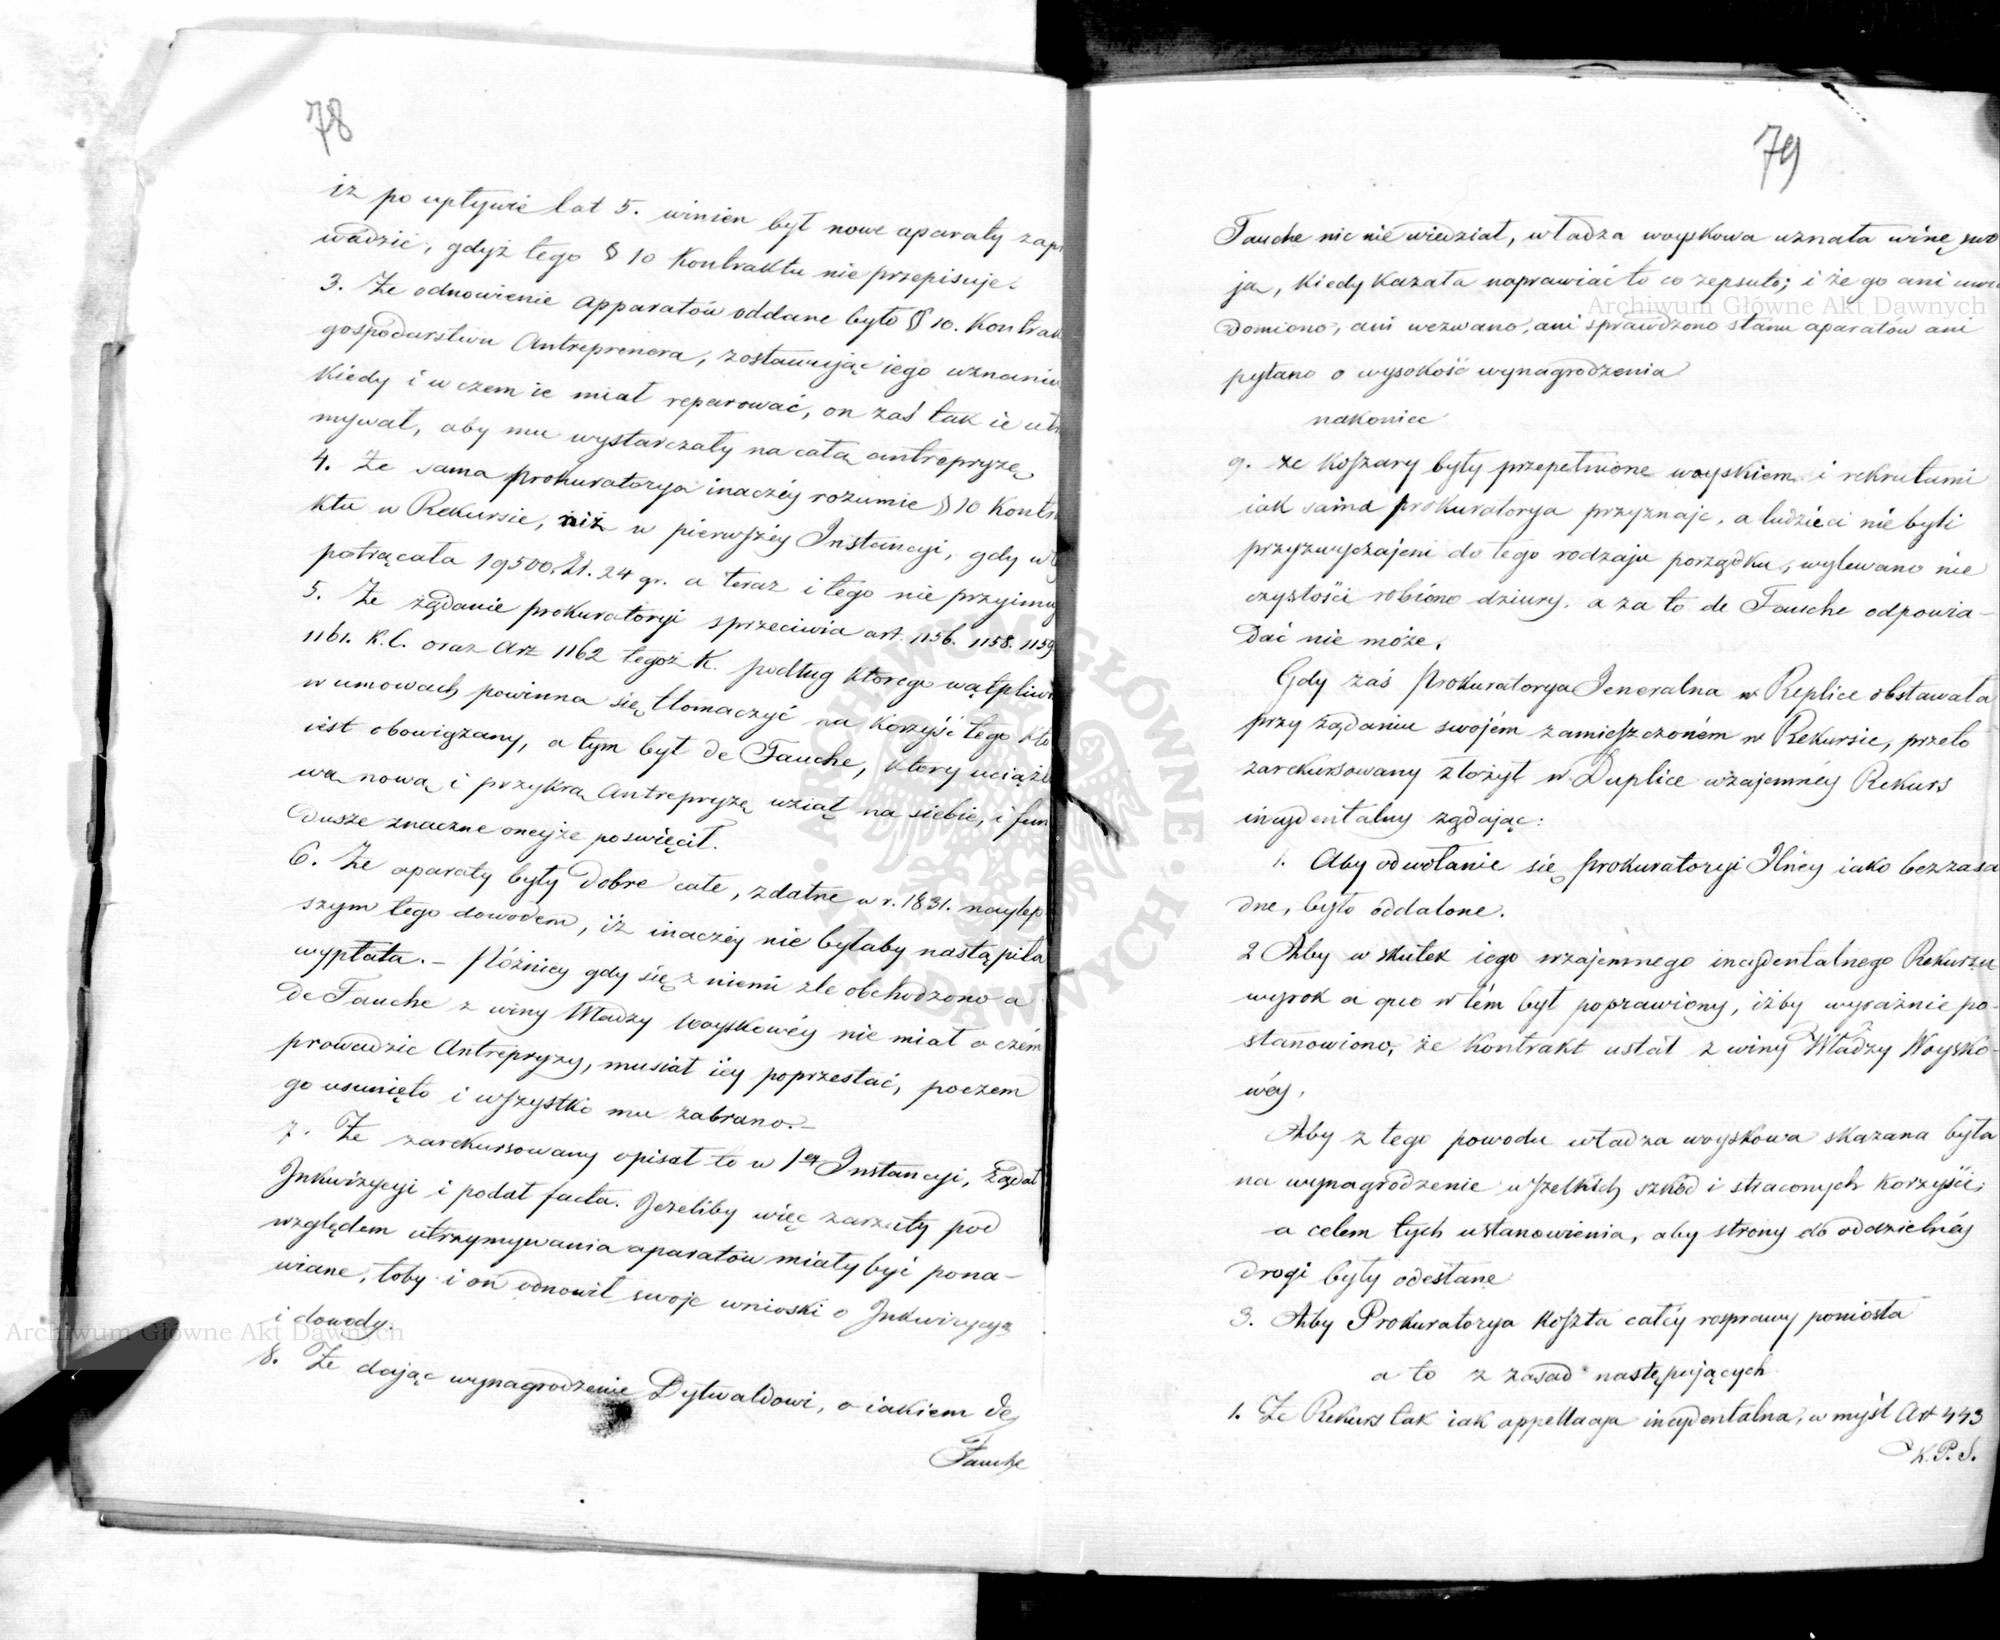 78
iż po upływie lat 5. winien był nowe aparaty zapr
wadzić, gdyż tego § 10 Kontraktu nie przepisuje.
3. Że odnowienie apparatów oddane było § 10. Kontrak
gospodarstwu Antreprenera, zostawując iego uznaniu
kiedy i w czem ie miał reparować, on zaś tak ie utr
mywał, aby mu wystarczały na całą antrepryzę
4. Że sama prokuratorya inaczéy rozumie § 10 Kontra
ktu w Rekursie, niż w pierwszéy Instancyi, gdy wt
potrącała 19500. Zł. 24 gr. a teraz i tego nie przyimu
5. Że żądanie prokuratoryi sprzeciwia art. 1156. 1158. 1159
1161. K.C. oraz Art 1162 tegoż K. podług którego wątpliw
w umowach powinna się tłomaczyć na korzyść tego kto
iest obowiązany, a tym był de Fauche, który uciążl
wą nową i przykrą Antrepryzę wziął na siebie, i fun
dusze znaczne oneyże poświęcił.
6. Że aparaty były dobre całe, zdatne w r. 1831. naylep
szym tego dowodem, iż inaczéy nie byłaby nastąpiła
wypłata. – Późniey gdy się z niemi źle obchodzono a
de Fauche z winy Władzy woyskowéy nie miał o czém
prowadzić Antrepryzy, musiał iéy poprzestać, poczem
go usunięto i wszystko mu zabrano. –
7. Że zarekursowany opisał to w 1ey Instancyi, żądał
Inkwizycyi i podał facta. Jeżeliby więc zarzuty pod
względem utrzymywania aparatów miały być pona-
wiane, toby i on odnowił swoje wnioski o Inkwizycyą
i dowody.
8. Że dając wynagrodzenie Dytwaldowi, o iakiem de
Fauche
79
Fauche nic nie wiedział, władza woyskowa uznała winę swo
ją, kiedy kazała naprawiać to co zepsuto; i że go ani uwia
domiono, ani wezwano, ani sprawdzono stanu aparatów ani
pytano o wysokość wynagrodzenia
nakoniec
9. że koszary były przepełnione woyskiem i rekrutami
iak sama prokuratorya przyznaje, a ludzie ci nie byli
przyzwyczajeni do tego rodzaju porządku, wylewano nie
czystości robiono dziury. a za to de Fauche odpowia-
dać nie może.
Gdy zaś Prokuratorya Jeneralna w Replice obstawała
przy żądaniu swojém zamieszczoném w Rekursie, przeto
zarekursowany złożył w Duplice wzajemnéy Rekurs
incydentalny żądając:
1. Aby odwołanie się prokuratoryi Jlnéy iako bezzasa
dne, było oddalone.
2 Aby w skutek iego wzajemnego incydentalnego Rekursu
wyrok a quo w tém był poprawiony, iżby wyraźnie po-
stanowiono, że Kontrakt ustał z winy Władzy Woysko-
wéy,
Aby z tego powodu władza woyskowa skazana była
na wynagrodzenie wszelkich szkód i straconych korzyści;
a celem tych ustanowienia, aby strony do oddzielnéy
drogi były odesłane
3. Aby Prokuratorya koszta całéy rosprawy poniosła
a to z zasad następujących
1. Że Rekurs tak iak appellacya incydentalna, w myśl Art 443
K.P.S.
Archiwum Główne Akt Dawnych
Archiwum Główne Akt Dawnych
ARCHIWUM GŁÓWNE AKT DAWNYCH